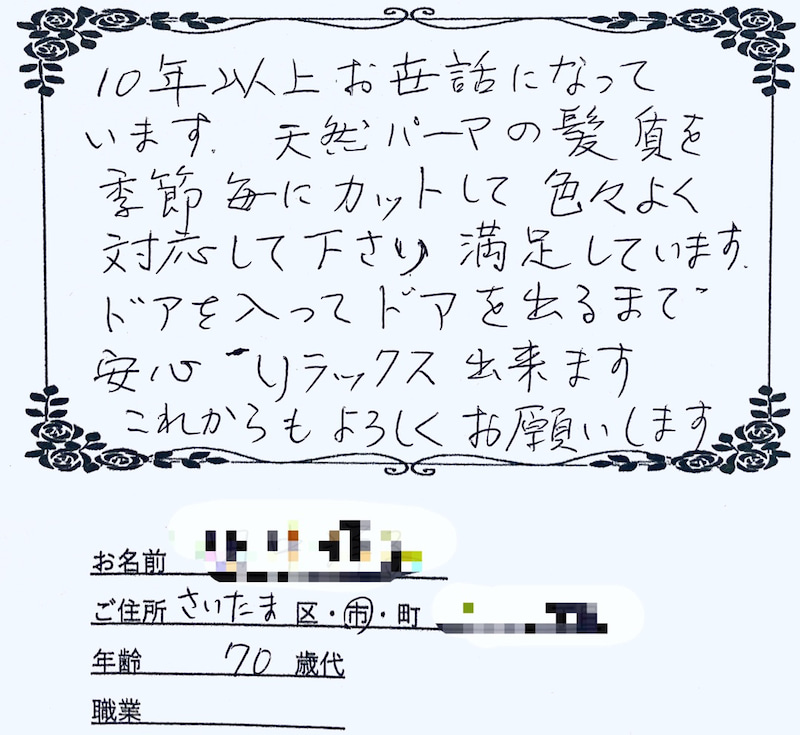 10年以上お世話になって
います。天然パーマの髪質を
季節毎にカットして色々よく
対応して下さり満足しています。
ドアを入ってドアを出るまで
安心 リラックス出来ます
これからもよろしくお願いします
お名前
ご住所 さいたま 区・市・町
年齢 70 歳代
職業